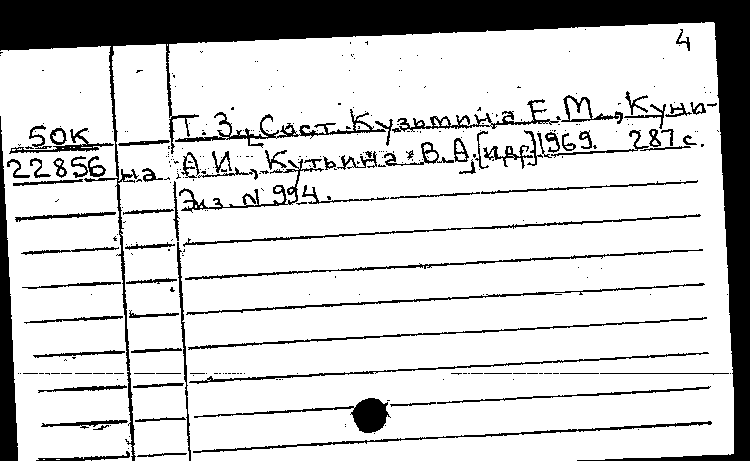 4
50К
22856
Т. 3. Сост. Кузьмина Е.М., Куни-
на А.И., Кутьина В.А. [и др.] 1969. 287 с.
Экз. N 994.